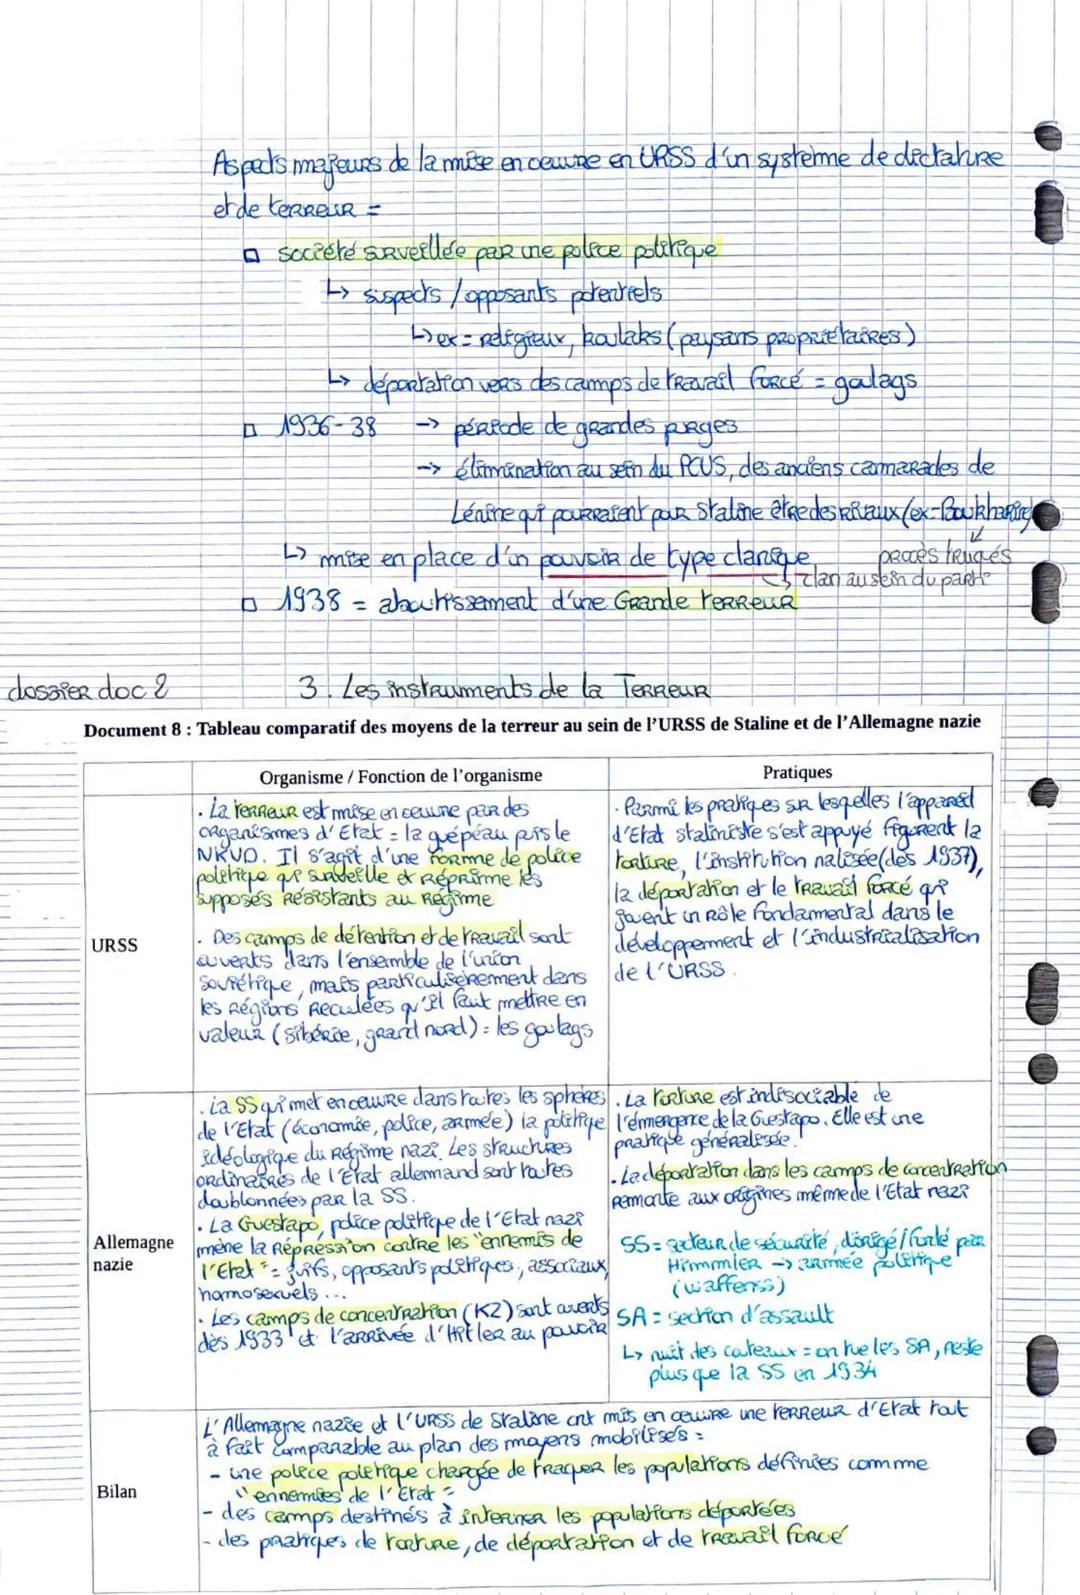 Aspects majeurs de la mise en oeuvre en URSS d'un systehme de dictature
et de terreur =
société surveillée par une police politique
↳ suspects / opposants potentiels
↳ ex = religieux, koulaks (paysans propriétaires)
↳ déportation vers des camps de travail forcé = goulags
1936-38 → période de grandes purges
→ élimination au sein du PCUS, des anciens camarades de
Lénine qui pourraient pour Staline être des rivaux (ex-Boukharine)
↳ mise en place d'un pouvoir de type clanique
procès truqués
↳ clan au sein du parti
1938 = aboutissement d'une Grande Terreur
dossier doc 2
3. Les instruments de la Terreur
Document 8 : Tableau comparatif des moyens de la terreur au sein de l'URSS de Staline et de l'Allemagne nazie
Organisme / Fonction de l'organisme
Pratiques
URSS
. La terreur est mise en oeuvre par des
organisames d'Etat = la guépéau puis le
NKVD. Il s'agit d'une forme de police
politique qui surveille et réprime les
supposés résistants au régime
. Des camps de détention et de travail sont
ouverts dans l'ensemble de l'union
Soviétique, mais particulièrement dans
les régions reculées qu'il faut mettre en
valeur (sibérie, grand nord) = les goulags
. Parmi les pratiques sur lesquelles l'appareil
d'Etat staliniste s'est appuyé figurent la
torture, l'institution nalisée (dès 1937),
la déportation et le travail forcé qui
jouent un rôle fondamental dans le
développement et l'industrialisation
de l'URSS.
Allemagne
nazie
. La SS qui met en oeuvre dans toutes les sphères
de l'Etat (économie, police, armée) la politique
idéologique du régime nazi. Les structures
ordinaires de l'Etat allemand sont toutes
doublonnées par la SS.
. La Guestapo, police politique de l'Etat nazi
mène la répression contre les "ennemis de
l'Etat" = juifs, opposants politiques, associaux,
homosexuels ...
. Les camps de concentration (KZ) sont ouverts
dès 1933 et l'arrivée d'Hitler au pouvoir
. La torture est indisociable de
l'émergence de la Guestapo. Elle est une
pratique généralisée.
. La déportation dans les camps de concentration
remonte aux origines même de l'Etat nazi
SS = secteur de sécurité, dirigé / fondé par
Himmler → armée politique
(waffenss)
SA = section d'assault
↳ nuit des couteaux = on tue les SA, reste
plus que la SS en 1934
Bilan
L'Allemagne nazie et l'URSS de Staline ont mis en oeuvre une terreur d'Etat tout
à fait comparable au plan des moyens mobilisés :
- une police politique chargée de traquer les populations définies comme
"ennemies de l'Etat"
- des camps destinés à interner les populations déportées
- des pratiques de torture, de déportation et de travail forcé